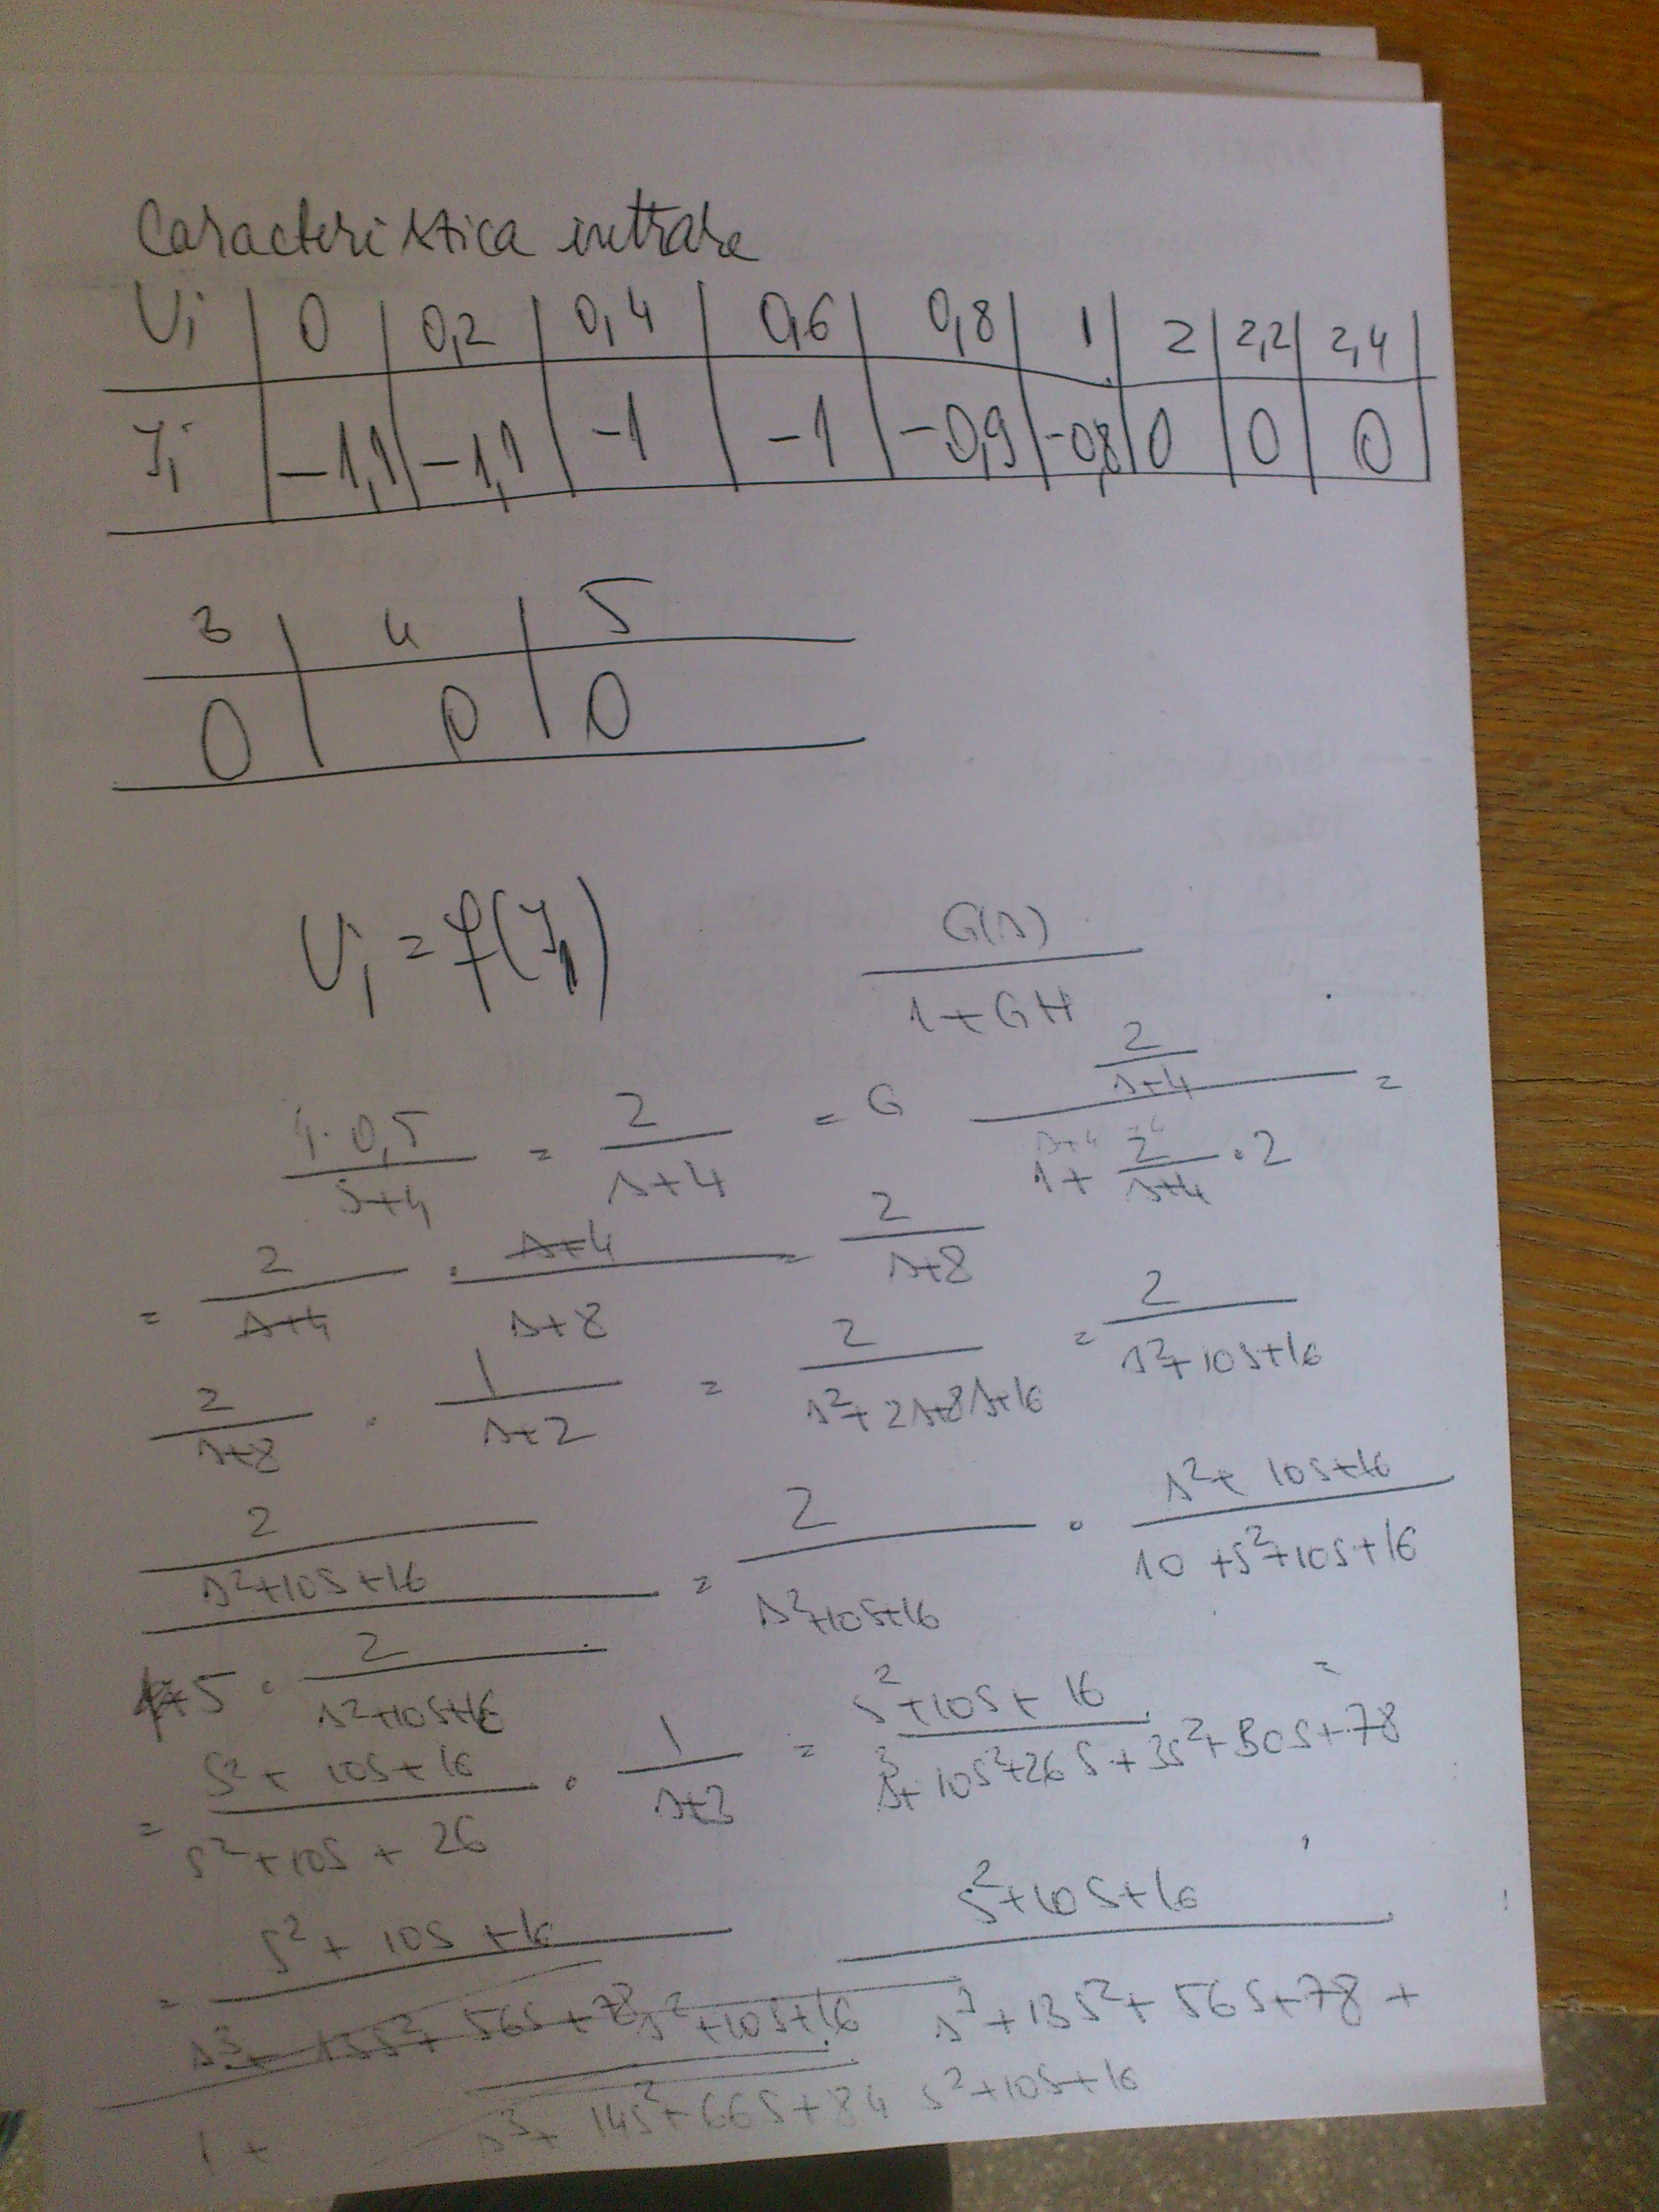 Caracteristica intrare
Ui | 0 | 0,2 | 0,4 | 0,6 | 0,8 | 1 | 2 | 2,2 | 2,4
Ii | -1,1 | -1,1 | -1 | -1 | -0,9 | -0,8 | 0 | 0 | 0
3 | 4 | 5
0 | 0 | 0
Ui = f(Ii)
G(s) / 1+GH
4·0,5 / s+4 = 2 / s+4 = G
2/s+4 / 1+ 2/s+4 ·2 =
= 2 / s+4 · s+4 / s+8 = 2 / s+8
2 / s+8 · 1 / s+2 = 2 / s²+2s+8s+16 = 2 / s²+10s+16
2 / s²+10s+16 / 1+5 · 2 / s²+10s+16 = 2 / s²+10s+16 · s²+10s+16 / 10+s²+10s+16 =
= s²+10s+16 / s²+10s+26 · 1 / s+3 = s²+10s+16 / s³+10s²+26s+3s²+30s+78
= s²+10s+16 / s³+13s²+56s+78
s²+10s+16 / s³+14s²+66s+84
1+
s²+10s+16 / s³+13s²+56s+78+
s²+10s+16